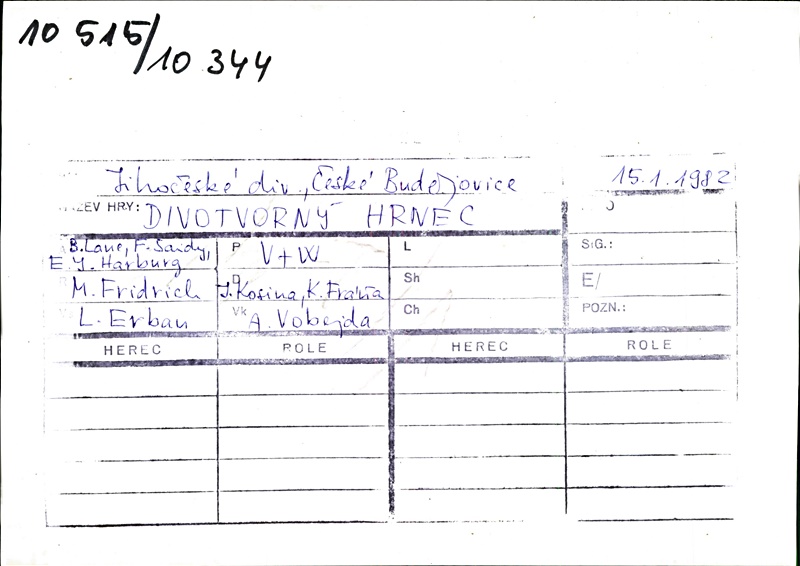 10 515/10 344
Jihočeské div., České Budějovice 15.1.1982
ZEV HRY: DIVOTVORNÝ HRNEC
B. Lane, F. Saidy, P V+W L SIG.:
E. Y. Harburg
M. Fridrich J. Kosina, K. Fráňa Sh E/
L. Erban Vk A. Vobejda Ch POZN.:
HEREC ROLE HEREC ROLE